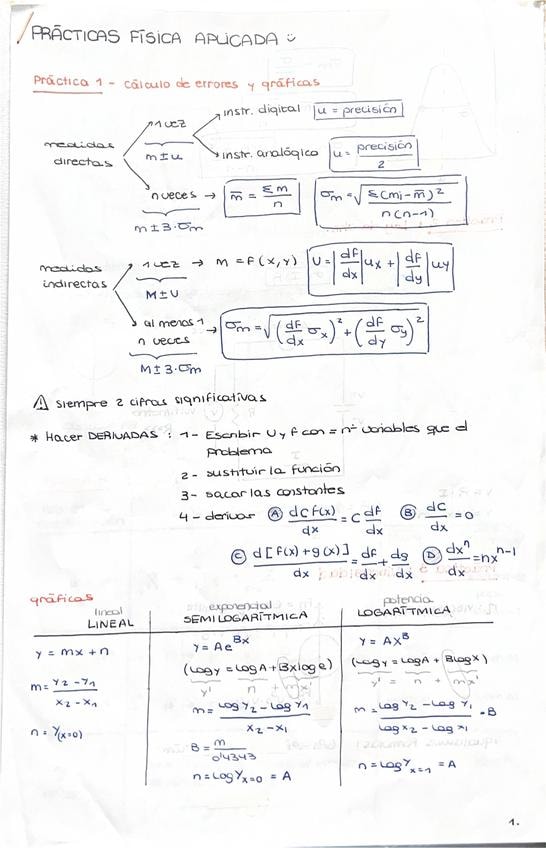 PRÁCTICAS FÍSICA APLICADA
Práctica 1 - cálculo de errores y gráficas
medidas directas
1 vez
m ± u
instr. digital u = precisión
instr. analógico u = precisión / 2
n veces → m̅ = Σm / n
σm = √( Σ(mi - m̅)² / n(n-1) )
m ± 3·σm
medidas indirectas
1 vez → m = f(x,y) U = |df/dx| ux + |df/dy| uy
M ± U
al menos 1 n veces → σm = √( (df/dx σx)² + (df/dy σy)² )
M ± 3·σm
⚠ siempre 2 cifras significativas
* Hacer DERIVADAS : 1 - Escribir U y f con = nº variables que el
problema
2 - sustituir la función
3 - sacar las constantes
4 - derivar Ⓐ dCf(x)/dx = C df/dx Ⓑ dC/dx = 0
Ⓒ d[f(x)+g(x)]/dx = df/dx + dg/dx Ⓓ dxⁿ/dx = nxⁿ⁻¹
gráficas
lineal
LINEAL
y = mx + n
m = (y₂ - y₁) / (x₂ - x₁)
n = y(x=0)
exponencial
SEMILOGARÍTMICA
y = Ae^Bx
(log y = log A + Bx log e)
y' = n + mx'
m = (log y₂ - log y₁) / (x₂ - x₁)
B = m / 0'4343
n = log y x=0 = A
potencia
LOGARÍTMICA
y = Ax^B
(log y = log A + B log x)
y' = n + mx'
m = (log y₂ - log y₁) / (log x₂ - log x₁) = B
n = log y x=1 = A
1.